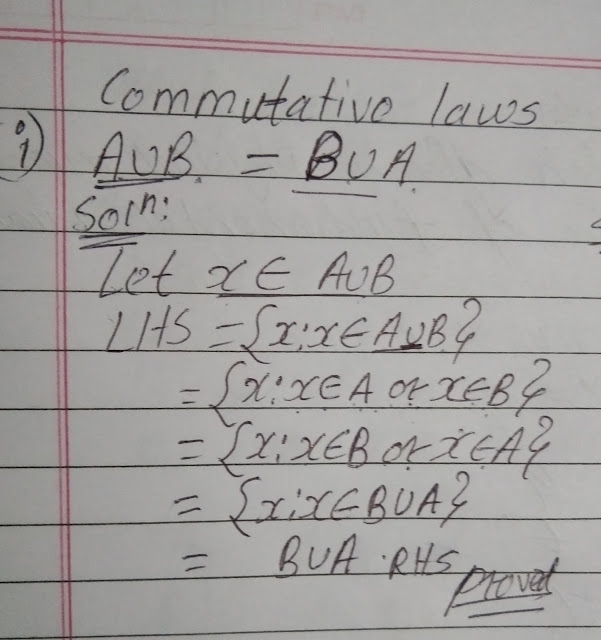 Commutative laws
i) A∪B. = B∪A
Solⁿ:
Let x ∈ A∪B
LHS = {x:x∈A∪B}
= {x:x∈A or x∈B}
= {x:x∈B or x∈A}
= {x:x∈B∪A}
= B∪A . RHS proved